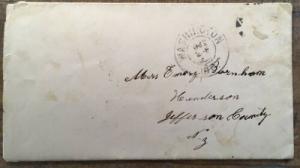 WASHINGTON
Miss Emory Barnham
Henderson
Jefferson County
N Y